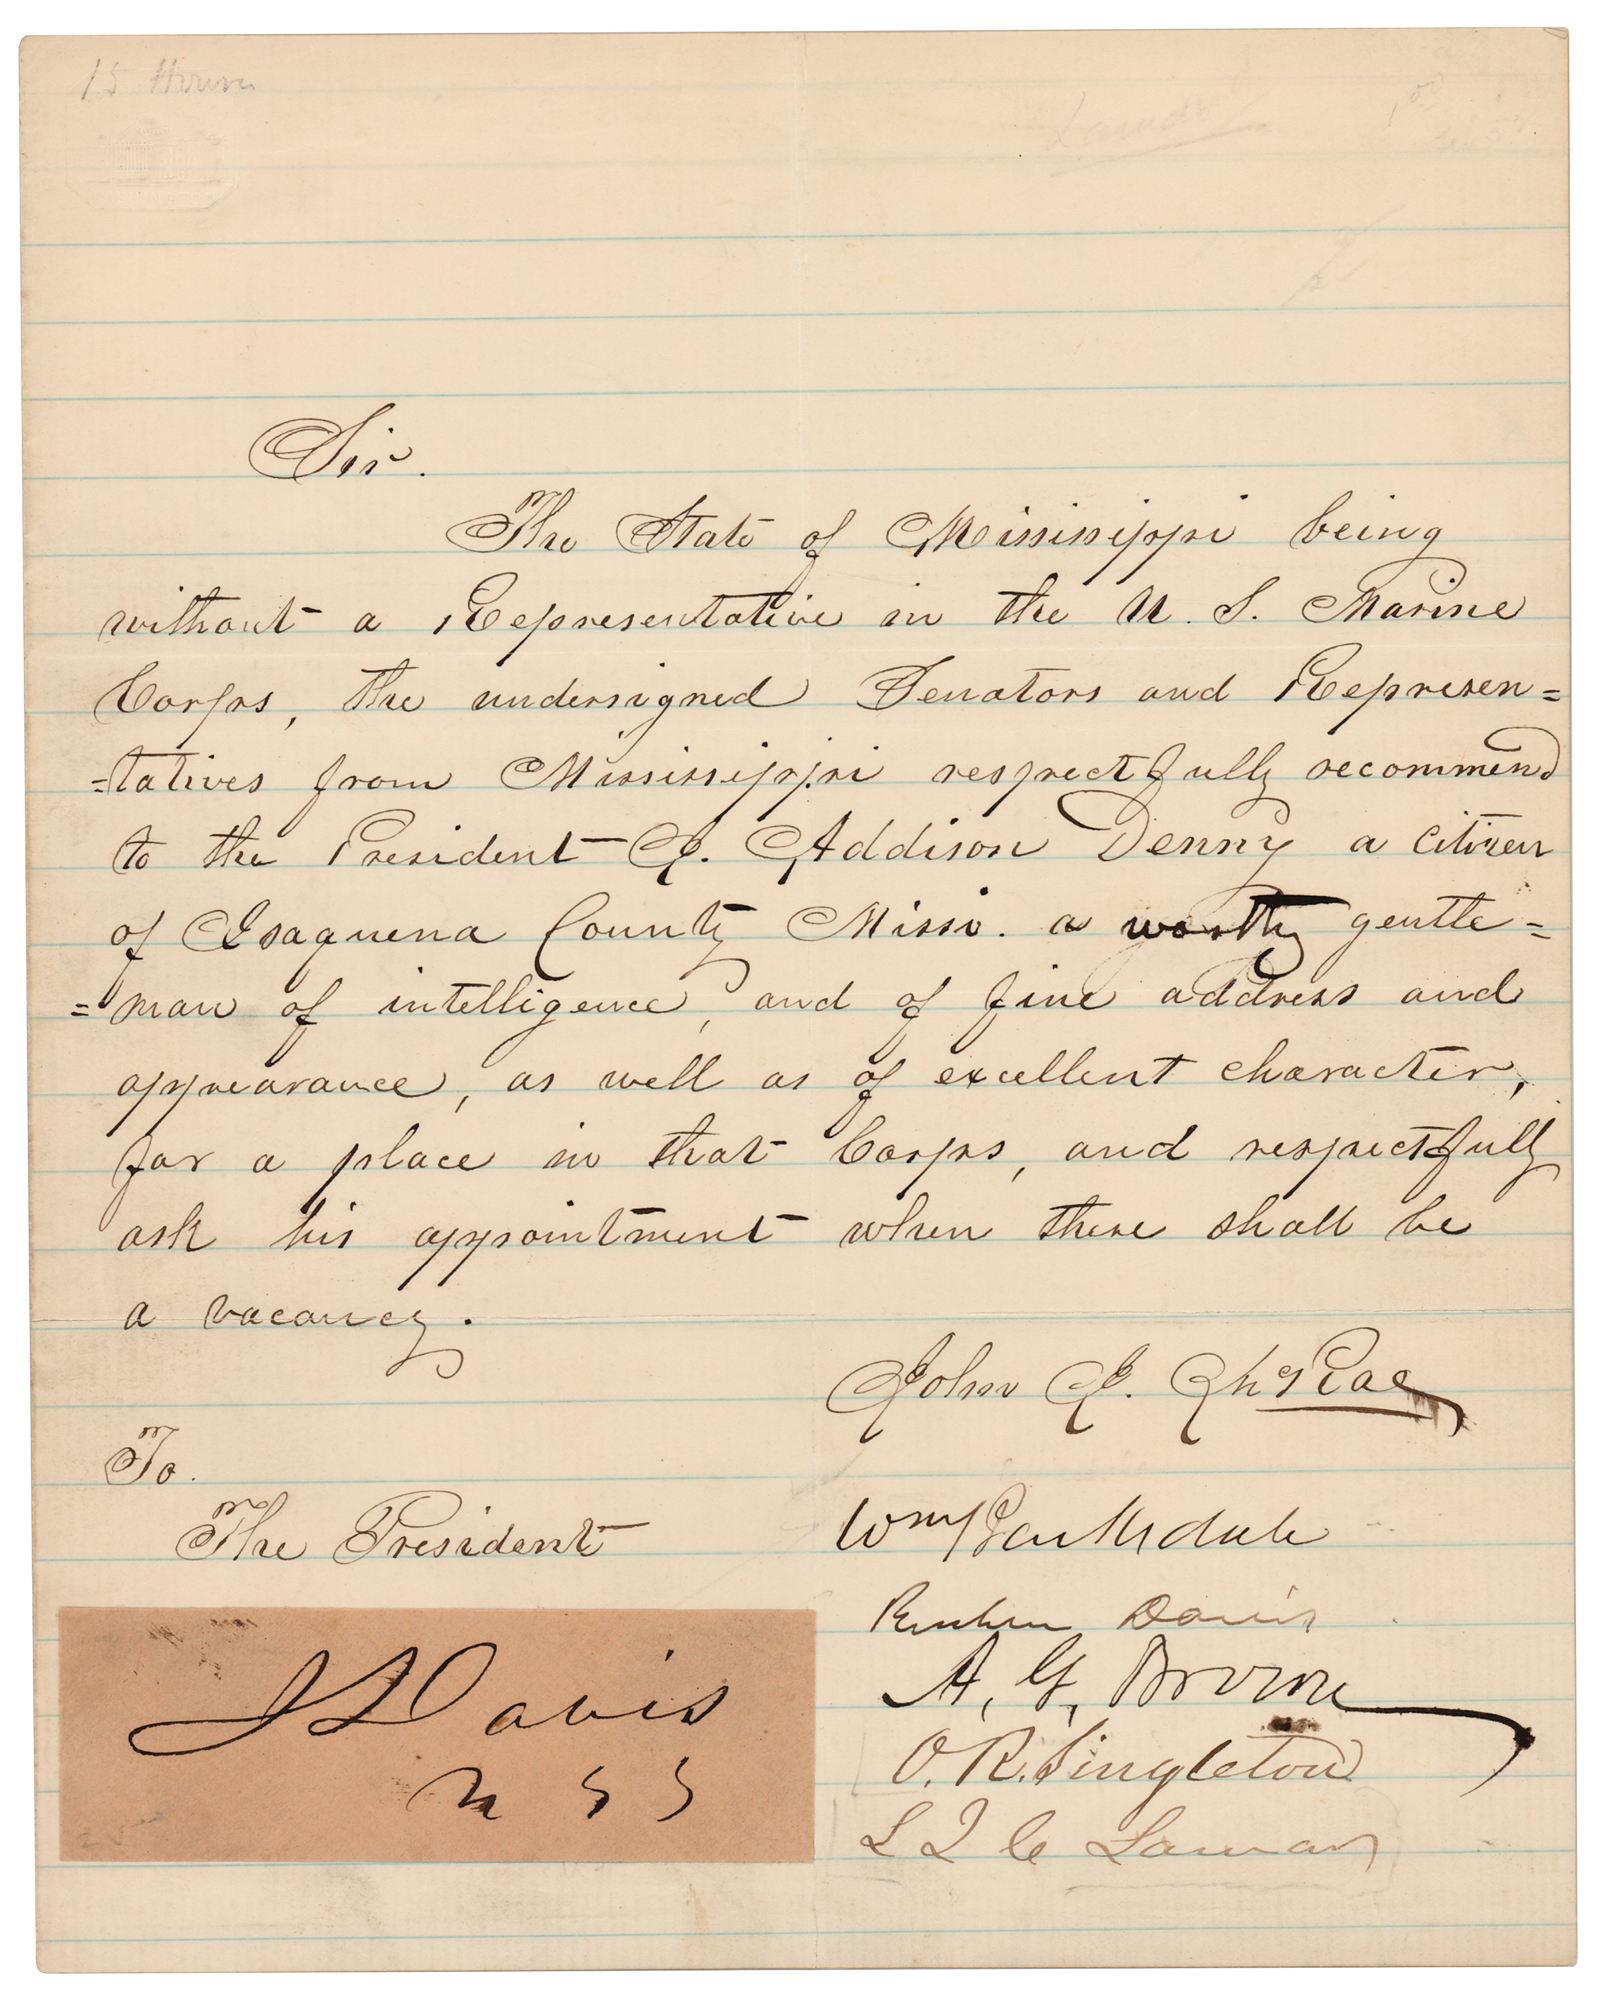 15
Sir.
The State of Mississippi being
without a Representative in the U. S. Marine
Corps, the undersigned Senators and Represen=
=tatives from Mississippi respectfully recommend
to the President J. Addison Denny a citizen
of Issaquena County Missi. a worthy gentle=
=man of intelligence, and of fine address and
appearance, as well as of excellent character,
for a place in that Corps, and respectfully
ask his appointment when there shall be
a vacancy.
John J. McRae
To.
The President
Wm Barksdale
Reuben Davis
A. G. Brown
O. R. Singleton
L Q C Lamar
J Davis
U S S